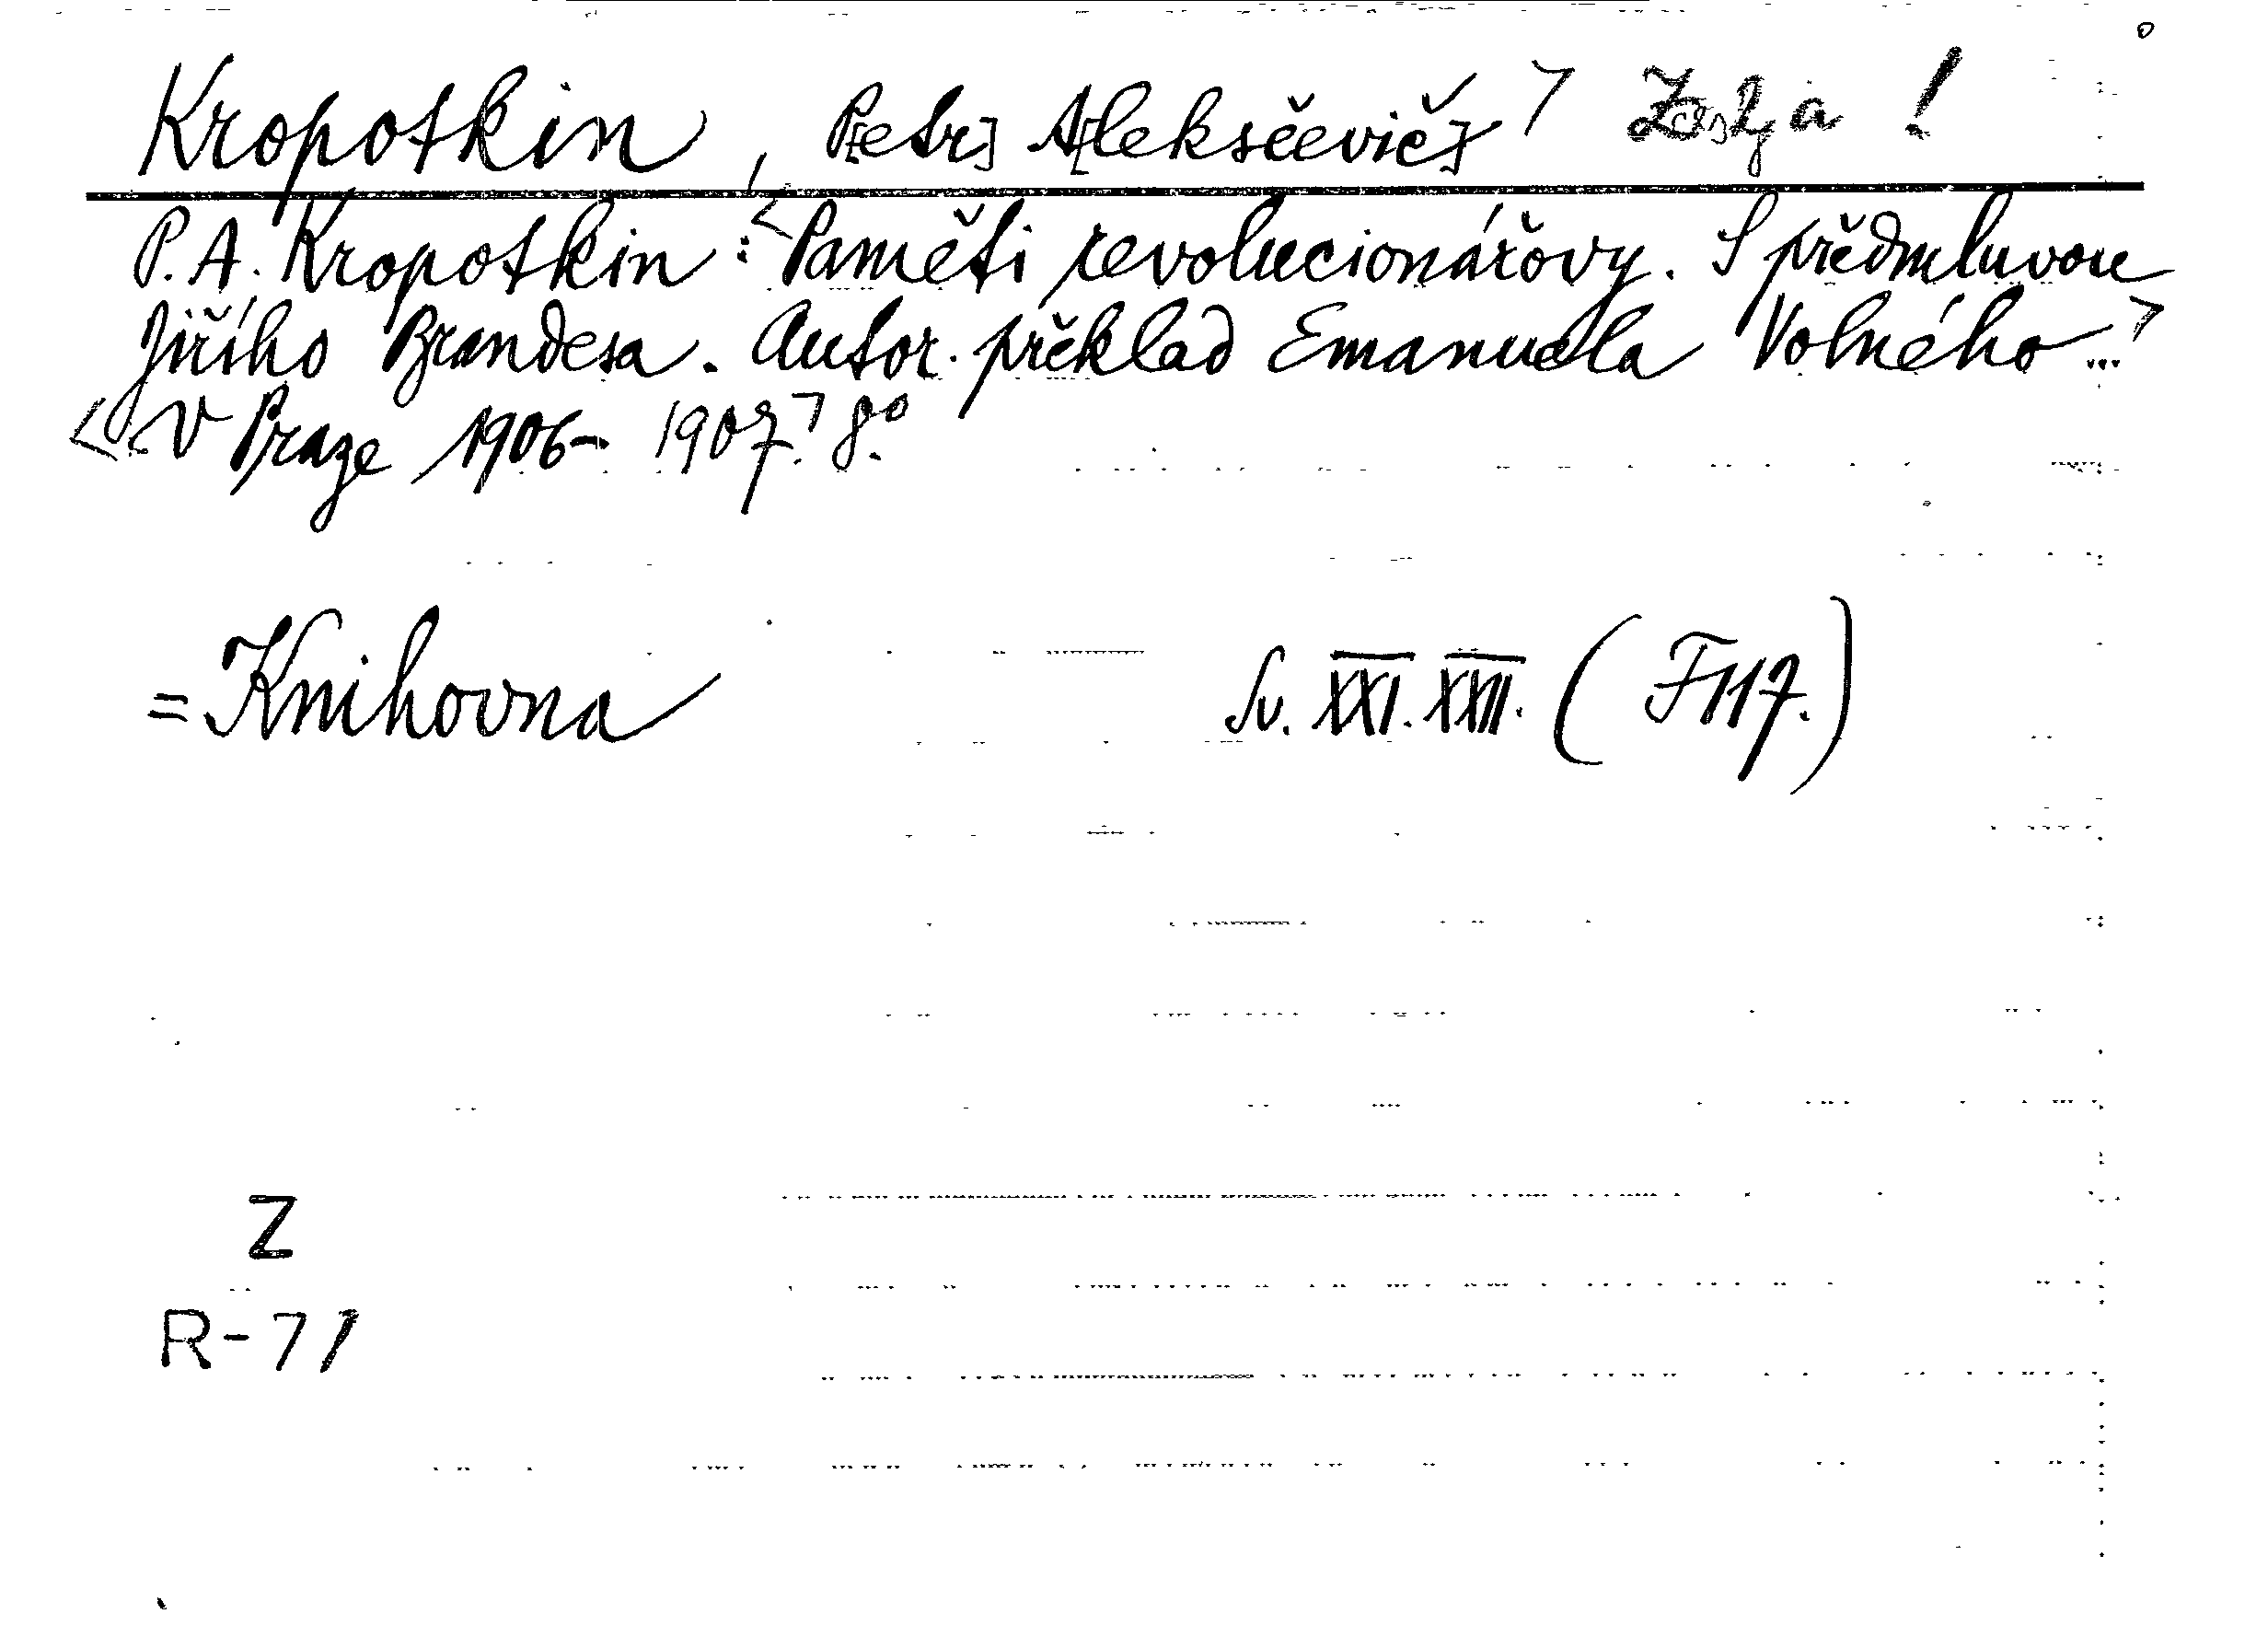 Kropotkin, P[etr] A[leksěevič]> !
P. A. Kropotkin: <Paměti revolucionářovy. S předmluvou
Jiřího Brandesa. Autor. překlad Emanuela Volného...>
<V Praze 1906-1907.> 8°.
= Knihovna Sv. XXI. XXII. (F117.)
Z
R-71